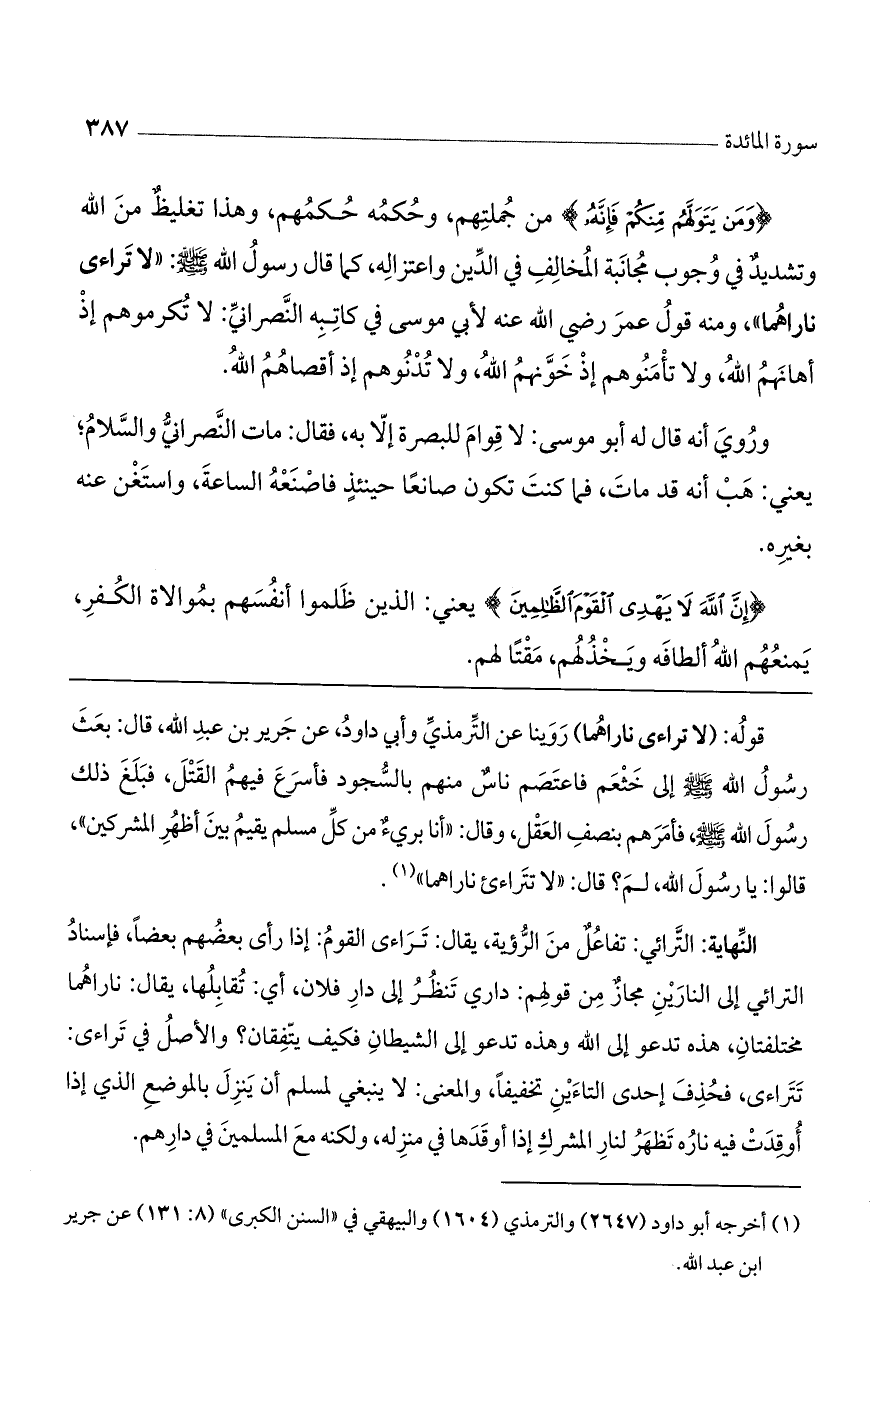 سورة المائدة ٣٨٧
﴿وَمَن يَتَوَلَّهُم مِّنكُمْ فَإِنَّهُۥ﴾ من جُملتِهم، وحُكمُه حُـكمُهم، وهذا تغليظٌ منَ الله
وتشديدٌ في وُجوب مُجانَبة المُخالِفِ في الدِّين واعتزالِه، كما قال رسولُ الله ﷺ: «لا تَراءى
ناراهُما»، ومنه قولُ عمرَ رضي الله عنه لأبي موسى في كاتِـبِه النَّصرانيِّ: لا تُكرموهم إذْ
أهانَهمُ اللهُ، ولا تأْمَنُوهم إذْ خَوَّنهمُ اللهُ، ولا تُدْنُوهم إذ أقصاهُمُ اللهُ.
ورُويَ أنه قال له أبو موسى: لا قِوامَ للبصرة إلّا به، فقال: مات النَّصرانيُّ والسَّلامُ؛
يعني: هَبْ أنه قد ماتَ، فما كنتَ تكون صانعًا حينئذٍ فاصْنَعْهُ الساعةَ، واستَغْن عنه
بغيرِه.
﴿إِنَّ ٱللَّهَ لَا يَهْدِى ٱلْقَوْمَ ٱلظَّٰلِمِينَ﴾ يعني: الذين ظَلموا أنفُسَهم بمُوالاة الكُـفرِ،
يَمنعُهُم اللهُ ألطافَه ويَـخْذُلُهم، مَقْتًا لهم.
قولُه: (لا تراءى ناراهُما) رَوَينا عن التِّرمذيِّ وأبي داودَ، عن جَرير بن عبدِ الله، قال: بعَثَ
رسُولُ الله ﷺ إلى خَثْعَم فاعتَصَم ناسٌ منهم بالسُّجود فأسرَعَ فيهمُ القَتْلَ، فبَلَغَ ذلك
رسُولَ الله ﷺ، فأمَرَهم بنصفِ العَقْل، وقال: «أنا بريءٌ من كلِّ مسلم يقيمُ بينَ أظهُرِ المشركين»،
قالوا: يا رسُولَ الله، لـمَ؟ قال: «لا تتَراءىٰ ناراهما»(١).
النِّهاية: التَّرائي: تفاعُلٌ منَ الرُّؤية، يقال: تَـرَاءى القومُ: إذا رأى بعضُهم بعضاً، فإسنادُ
الترائي إلى النارَيْنِ مجازٌ مِن قولِهم: داري تَنظُـرُ إلى دارِ فلان، أي: تُقابِلُها، يقال: ناراهُما
مختلفتانِ، هذه تدعو إلى الله وهذه تدعو إلى الشيطانِ فكيف يتّفِقان؟ والأصلُ في تَراءى:
تَتَراءى، فحُذِفَ إحدى التاءَيْنِ تخفيفاً، والمعنى: لا ينبغي لمسلم أن يَنزِلَ بالموضعِ الذي إذا
أُوقِدَتْ فيه نارُه تَظهَرُ لنارِ المشركِ إذا أوقَدَها في منزِله، ولكنه معَ المسلمينَ في دارِهم.
(١) أخرجه أبو داود (٢٦٤٧) والترمذي (١٦٠٤) والبيهقي في «السنن الكبرى» (٨: ١٣١) عن جرير
ابن عبد الله.